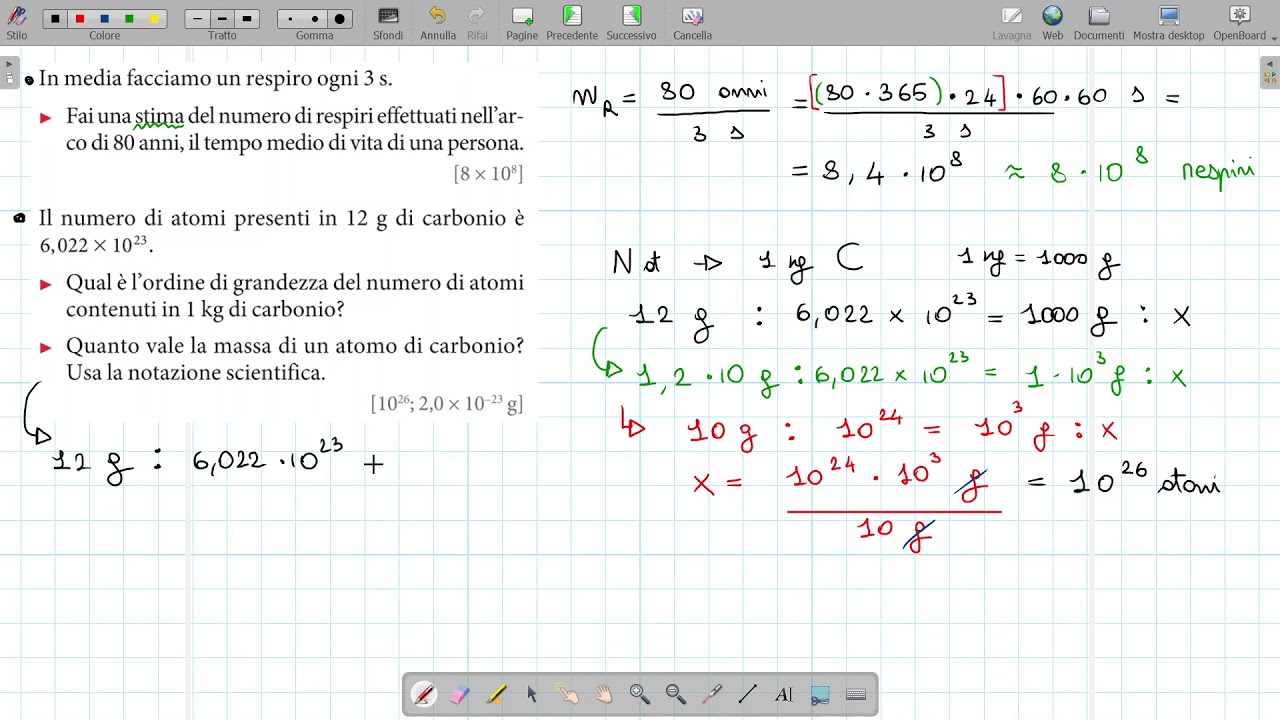 Stilo Colore Tratto Gomma Sfondi Annulla Rifai Pagine Precedente Successivo Cancella Lavagna Web Documenti Mostra desktop OpenBoard
In media facciamo un respiro ogni 3 s.
Fai una stima del numero di respiri effettuati nell'ar-
co di 80 anni, il tempo medio di vita di una persona.
[8 × 10⁸]
Il numero di atomi presenti in 12 g di carbonio è
6,022 × 10²³.
Qual è l'ordine di grandezza del numero di atomi
contenuti in 1 kg di carbonio?
Quanto vale la massa di un atomo di carbonio?
Usa la notazione scientifica.
[10²⁶; 2,0 × 10⁻²³ g]
12 g : 6,022 · 10²³ +
n_R = 80 anni / 3 s = [(80 · 365) · 24] · 60 · 60 s / 3 s =
= 8,4 · 10⁸ ≈ 8 · 10⁸ respiri
N at → 1 kg C 1 kg = 1000 g
12 g : 6,022 × 10²³ = 1000 g : x
1,2 · 10 g : 6,022 × 10²³ = 1 · 10³ g : x
10 g : 10²⁴ = 10³ g : x
x = 10²⁴ · 10³ g / 10 g = 10²⁶ atomi
AI